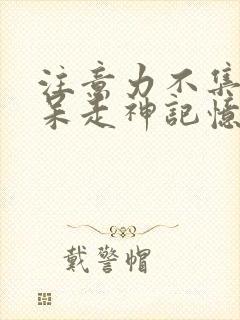 注意力不集
呆走神記憶
戴警帽